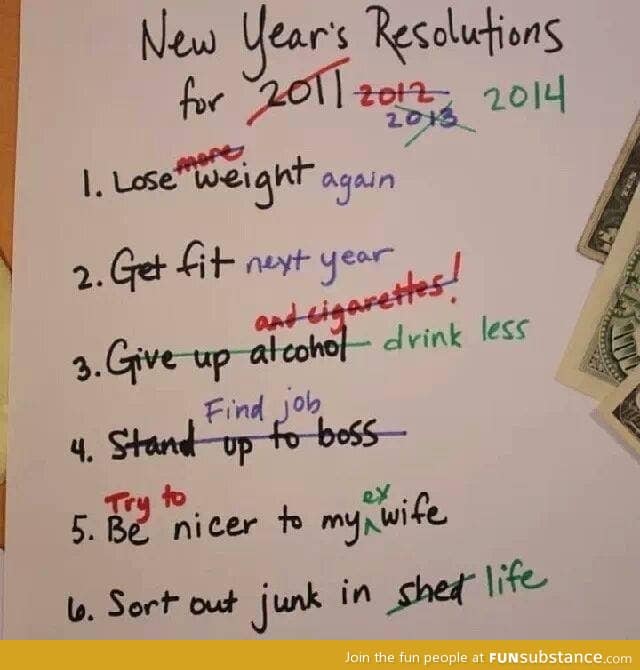 New Year's Resolutions
for 2011 2012 2013 2014
1. Lose more weight again
2. Get fit next year
and cigarettes!
3. Give up alcohol drink less
Find job
4. Stand up to boss
Try to
5. Be nicer to my ex wife
6. Sort out junk in shed life
Join the fun people at FUNsubstance.com